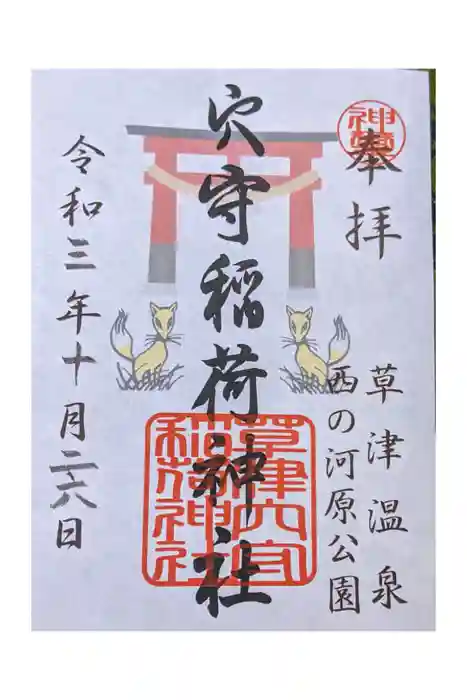 奉拝
草津温泉
西の河原公園
穴守稲荷神社
草津穴守
稲荷神社
令和三年十月二六日